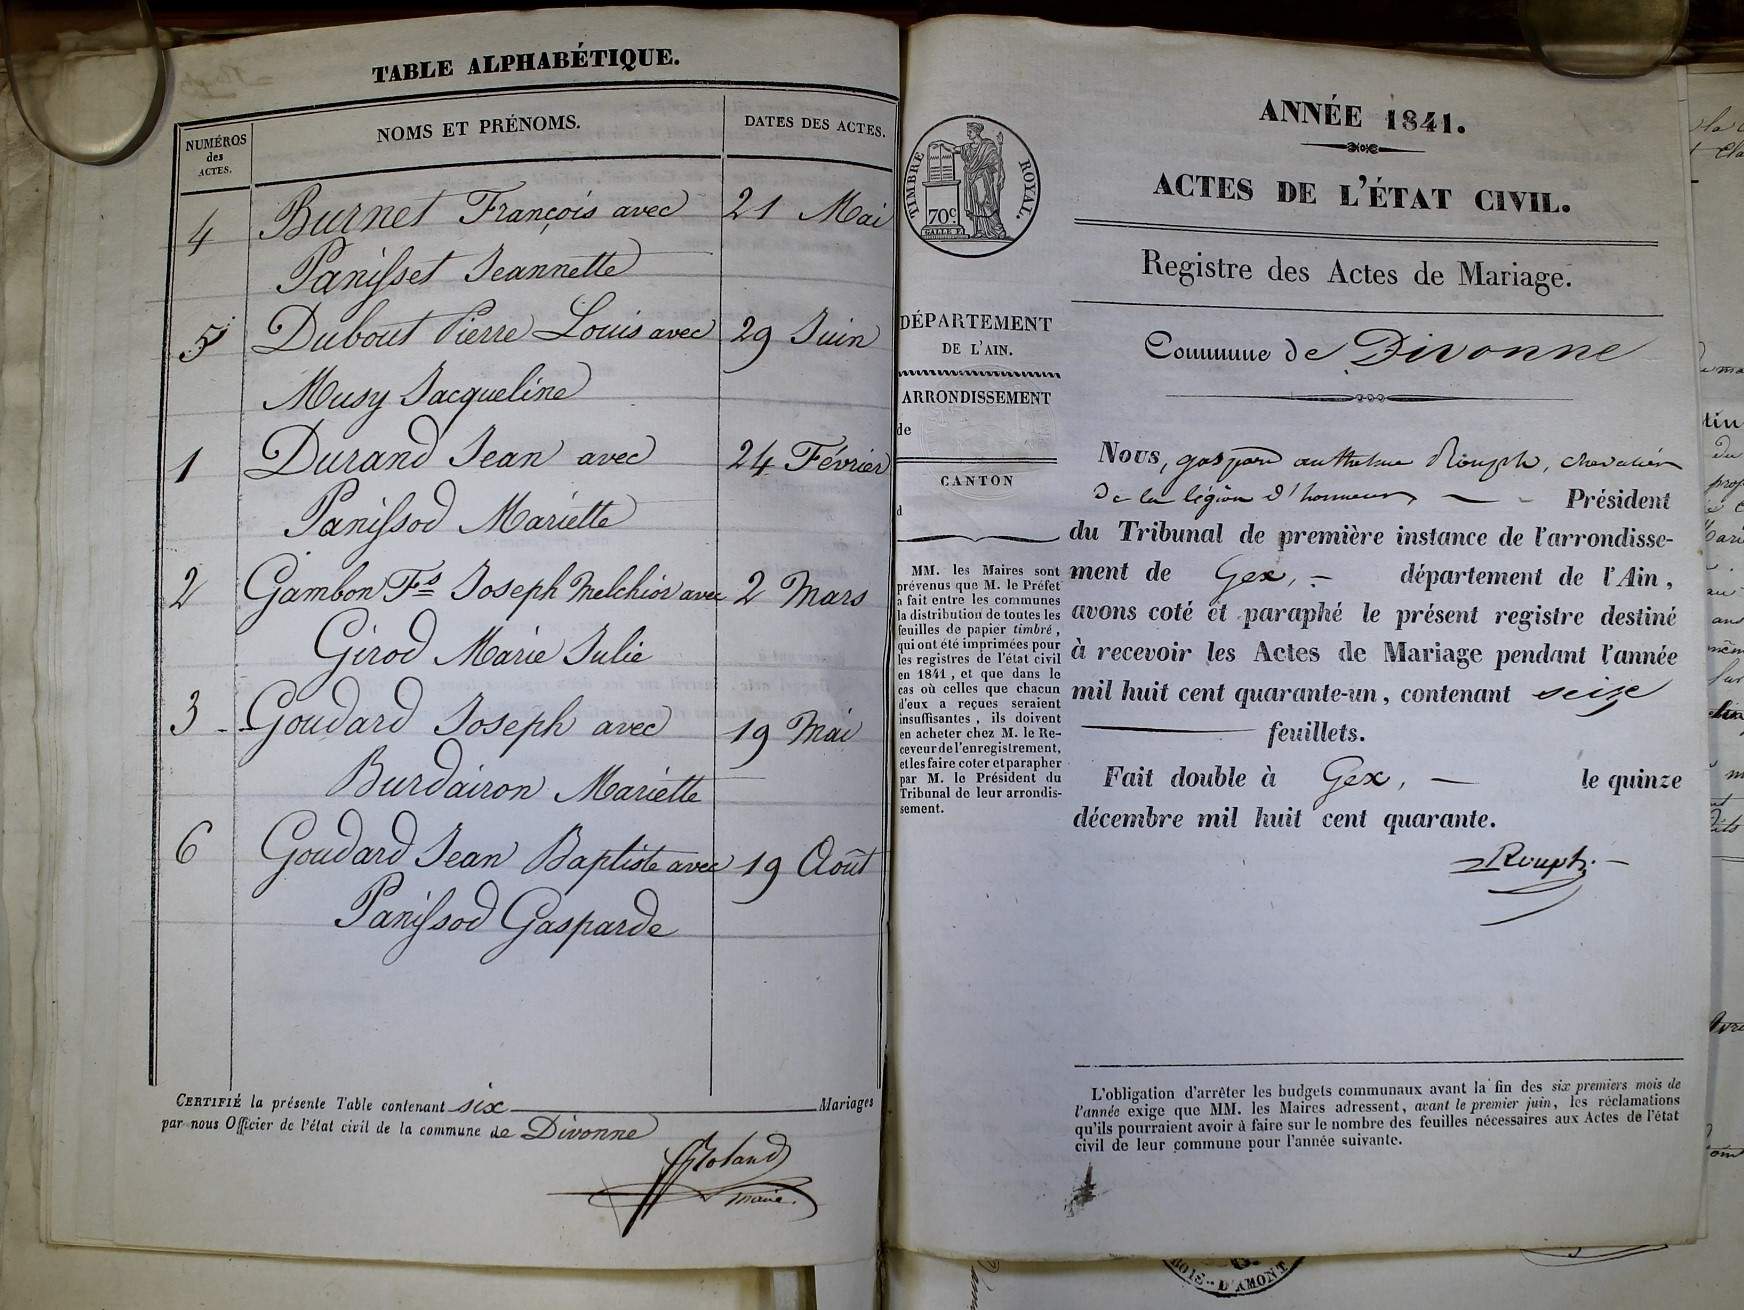 TABLE ALPHABÉTIQUE.
NUMÉROS des ACTES.
NOMS ET PRÉNOMS.
DATES DES ACTES.
4 Burnet François avec 21 Mai
Panisset Jeannette
5 Dubout Pierre Louis avec 29 Juin
Musy Jacqueline
1 Durand Jean avec 24 Février
Panissod Mariette
2 Gambon Fs Joseph Melchior avec 2 Mars
Girod Marie Julie
3 Goudard Joseph avec 19 Mai
Burdairon Mariette
6 Goudard Jean Baptiste avec 19 Août
Panissod Gasparde
CERTIFIÉ la présente Table contenant six Mariages
par nous Officier de l'état civil de la commune de Divonne
Roland
maire.
TIMBRE ROYAL.
70c.
DÉPARTEMENT
DE L'AIN.
ARRONDISSEMENT
de
CANTON
d
MM. les Maires sont
prévenus que M. le Préfet
a fait entre les communes
la distribution de toutes les
feuilles de papier timbré,
qui ont été imprimées pour
les registres de l'état civil
en 1841, et que dans le
cas où celles que chacun
d'eux a reçues seraient
insuffisantes, ils doivent
en acheter chez M. le Re-
ceveur de l'enregistrement,
et les faire coter et parapher
par M. le Président du
Tribunal de leur arrondis-
sement.
ANNÉE 1841.
ACTES DE L'ÉTAT CIVIL.
Registre des Actes de Mariage.
Commune de Divonne
Nous, gaspard anthelme Rouph, chevalier
de la légion d'honneur Président
du Tribunal de première instance de l'arrondisse-
ment de Gex, département de l'Ain,
avons coté et paraphé le présent registre destiné
à recevoir les Actes de Mariage pendant l'année
mil huit cent quarante-un, contenant seize
feuillets.
Fait double à Gex, le quinze
décembre mil huit cent quarante.
Rouph.
L'obligation d'arrêter les budgets communaux avant la fin des six premiers mois de
l'année exige que MM. les Maires adressent, avant le premier juin, les réclamations
qu'ils pourraient avoir à faire sur le nombre des feuilles nécessaires aux Actes de l'état
civil de leur commune pour l'année suivante.
BOIS-D'AMONT